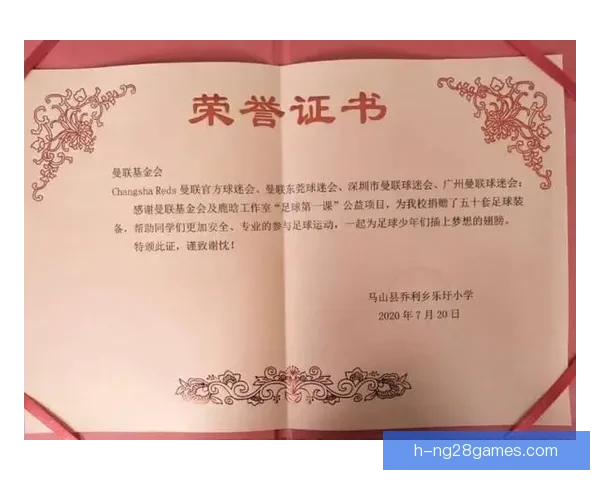 荣誉证书
曼联基金会
Changsha Reds 曼联官方球迷会、曼联东莞球迷会、深圳市曼联球迷会、广州曼联球迷会：
感谢曼联基金会及鹿晗工作室“足球第一课”公益项目，为我校捐赠了五十套足球装
备，帮助同学们更加安全、专业的参与足球运动，一起为足球少年们插上梦想的翅膀。
特颁此证，谨致谢忱！
马山县乔利乡乐圩小学
2020 年 7 月 20 日
h-ng28games.com